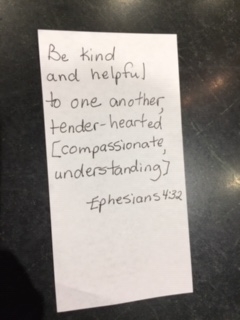 Be kind
and helpful
to one another,
tender-hearted
[compassionate,
understanding]
-Ephesians 4:32